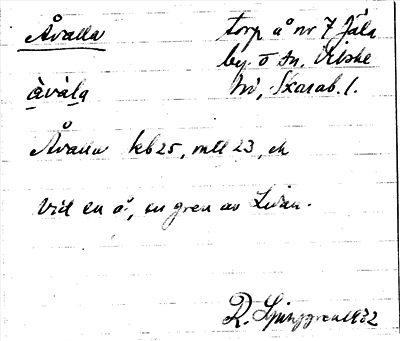 Åvalla
torp å nr 7 Jäla
by o sn, Vilske
hd, Skarab. l.
åvàla
Åvalla kb 25, mtl 23, ek
Vid en å, en gren av Lidan.
R. Ljunggren 1932